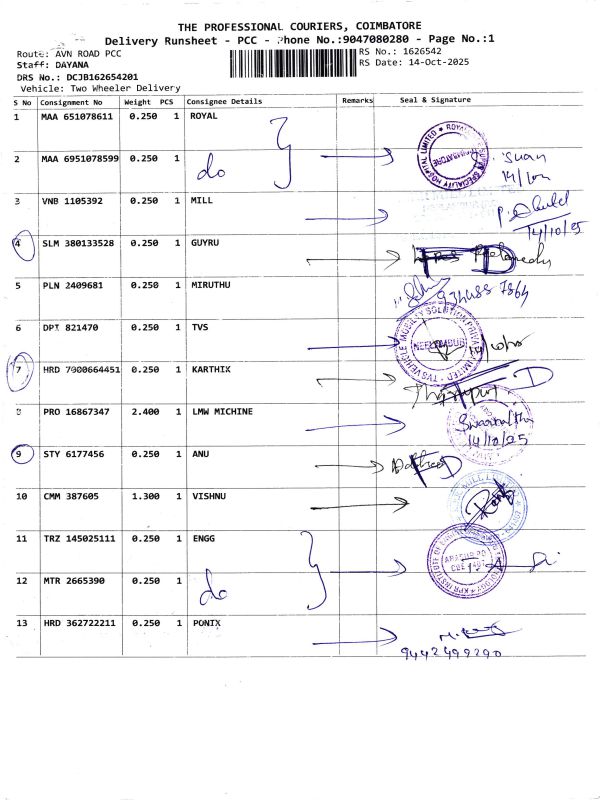 THE PROFESSIONAL COURIERS, COIMBATORE
Delivery Runsheet - PCC - Phone No.:9047080280 - Page No.:1
Route: AVN ROAD PCC
RS No.: 1626542
Staff: DAYANA
RS Date: 14-Oct-2025
DRS No.: DCJB162654201
Vehicle: Two Wheeler Delivery
S No Consignment No Weight PCS Consignee Details Remarks Seal & Signature
1 MAA 651078611 0.250 1 ROYAL
2 MAA 6951078599 0.250 1 do
3 VNB 1105392 0.250 1 MILL
14/10/25
4 SLM 380133528 0.250 1 GUYRU
5 PLN 2409681 0.250 1 MIRUTHU
6 DPI 821470 0.250 1 TVS
7 HRD 7000664451 0.250 1 KARTHIX
8 PRO 16867347 2.400 1 LMW MICHINE
14/10/25
9 STY 6177456 0.250 1 ANU
10 CMM 387605 1.300 1 VISHNU
11 TRZ 145025111 0.250 1 ENGG
12 MTR 2665390 0.250 1 do
13 HRD 362722211 0.250 1 PONIX
9442499290